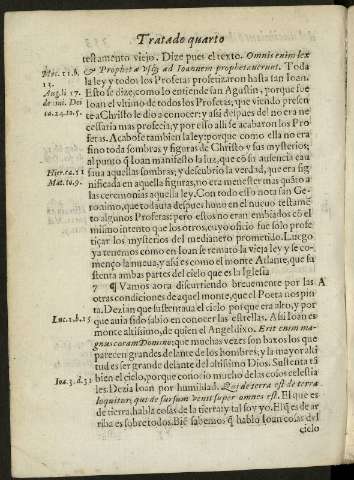 Tratado quarto
testamento viejo. Dize pues el texto. Omnis enim lex
& Prophetæ vsq; ad Ioannem prophetauerunt. Toda
la ley y todos los Profetas profetizaron hasta san Ioan.
Esto se dize, como lo entiende san Agustin, porque fue
Ioan el vltimo de todos los Profetas, que viendo presen
te a Christo le dio a conocer; y assi despues del no era ne
cessaria mas profecia, y por esso alli se acabaron los Pro
fetas. Acabose tambien la ley; porque como ella no era
sino toda sombras y figuras de Christo y sus mysterios;
al punto q̃ Ioan manifesto la luz, que cõ su ausencia cau
saua aquellas sombras; y descubrio la verdad, que era sig-
nificada en aquella figuras, no era menester mas quato a
las ceremonias aquella ley. Con todo esso nota san Ge-
ronimo, que todauia despues huuo en el nueuo testamẽ
to algunos Profetas: pero estos no eran embiados cõ el
mismo intento que los otros, cuyo oficio fue solo profe
tizar los mysterios del medianero prometido. Luego
ya tenemos como en Ioan se remato la vieja ley y se co-
menço la nueua, y assi es como el monte Atlante, que su
stenta ambas partes del cielo que es la Iglesia
7 ¶ Vamos aora discurriendo breuemente por las A
otras condiciones de aquel monte, que el Poeta nos pin
ta. Dezian que sustentaua el cielo, porque era alto, y por
que auia sido sabio en conocer las estrellas. Assi Ioan es
monte altissimo, de quien el Angel dixo. Erit enim ma-
gnus coram Domino; que muchas vezes son baxos los que
parecen grandes delante de los hombres; y la mayor alti
tud es ser grande delante del altissimo Dios. Sustenta tã
bien el cielo, porque conocio mucho de las cosas celestia
les. Dezia Ioan por humildad. Qui de terra est de terra
loquitur, qui de sursum venit super omnes est. El que es
de tierra, habla cosas de la tierra y tal soy yo. El q̃ es de ar
riba es sobre todos. Biẽ sabemos q̃ hablo Ioan cosas del
cielo
Mat. 11. b.
13.
Aug. li 17.
de ciui. Dei
Hier. ca. 11
Mat. to. 9.
Luc. 1. b. 15
Ioa. 3. d. 31